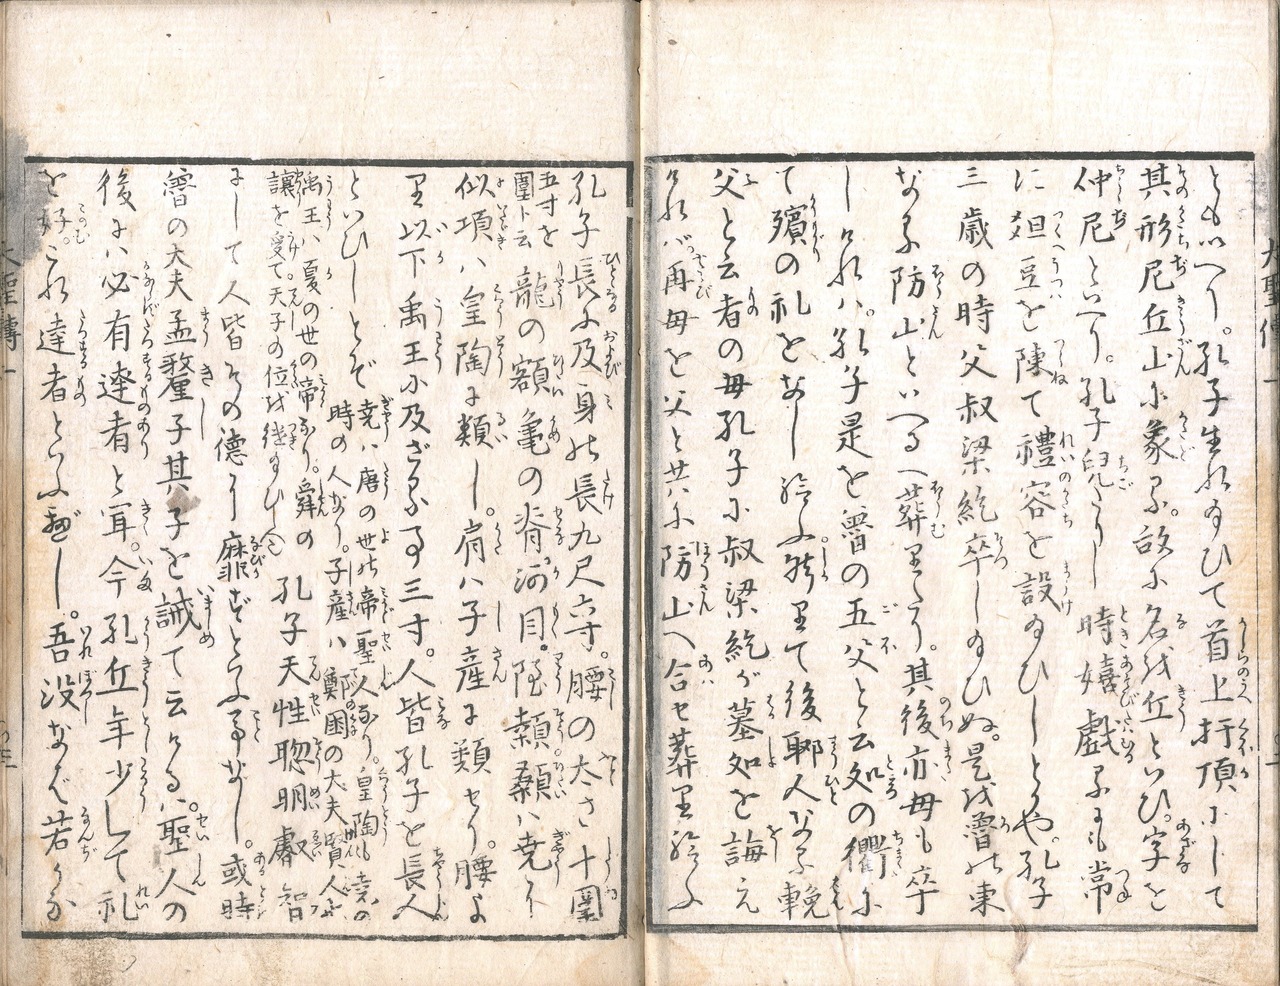 ともいへり。孔子生れ給ひて首上圩頂にして
其形尼丘山に象る。故に名を丘といひ。字を
仲尼といへり。孔子児たりし時嬉戯るにも常
に俎豆を陳て禮容を設給ひしとや。孔子
三歳の時父叔梁紇卒し給ひぬ。是を魯の東
なる防山といへる へ葬里たり。其後亦母も卒
しけれハ。孔子是を魯の五父と云処の衢に
て殯の礼をなし給ふ然里て後耶人なる輓
父と云者の母孔子に叔梁紇が墓処を誨え
けれバ。再母を父と共に防山へ合せ葬里給ふ
孔子長に及身の長九尺六寸。腰の太さ十圍
五寸を圍ト云龍の額亀の脊河目。隆顙顙ハ堯に
似項ハ皇陶に類し。肩ハ子産に類せり。腰よ
里以下禹王に及ざる事三寸。人皆孔子を長人
といひしとぞ 堯ハ唐の世の帝聖人なり。皇陶も堯の
時の人なり。子産ハ鄭国の大夫賢人
禹王ハ夏の世の帝なり。舜の
譲を受て。天子の位を継給ひし 孔子天性聡明叡智
にして人皆その徳に靡ずといふ事なし。或時
魯の大夫孟釐子其子を誡て云ける。聖人の
後にハ必有達者と聞。今孔丘年少して礼
を好。これ達者といふべし。吾没なば若かな
大聖傳一